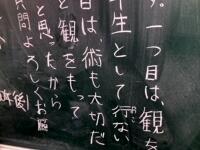 す。一つ目は、観を
年生として行ない
目は、術も大切だ
と観をもって
と思ったから
年間よろしくお願